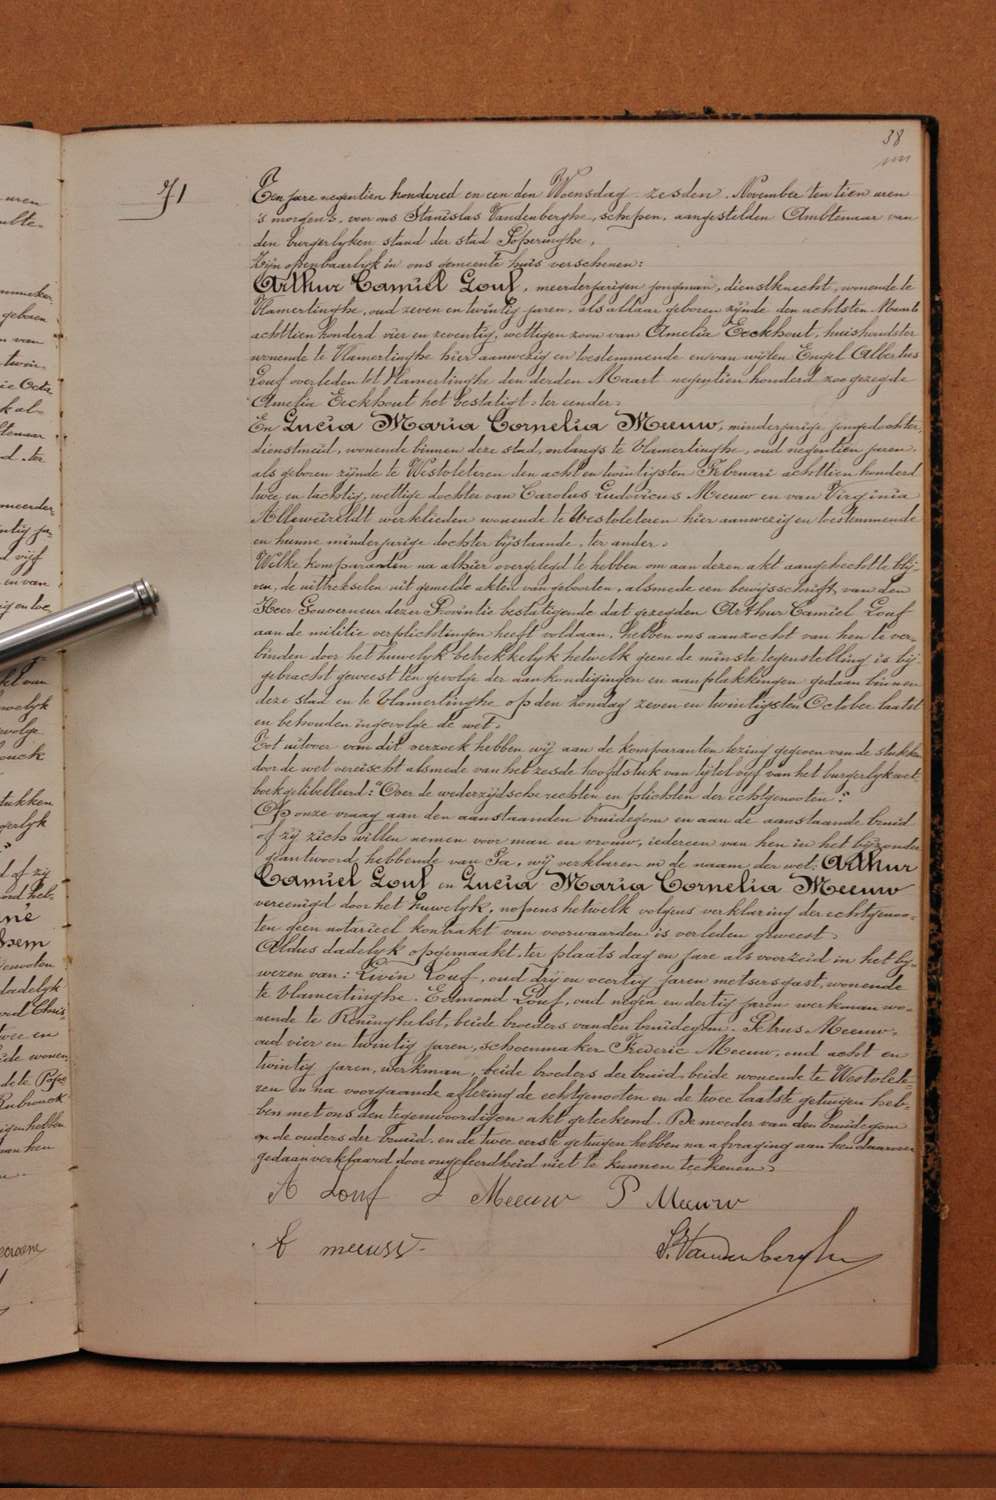 38
71
Ten jare negentien honderd en een den Woensdag zesden November ten tien uren
's morgen's, voor ons Stanislas Vandenberghe, schepen, aangestelden Ambtenaar van
den burgerlyken stand der stad Poperinghe,
Zijn openbaarlijk in ons gemeente huis verschenen:
Arthur Camiel Louf, meerderjarigen jongman, dienstknecht, wonende te
Vlamertinghe, oud zeven en twintig jaren, als aldaar geboren zijnde den achtsten Maarts
achttien honderd vier en zeventig, wettigen zoon van Amelia Eeckhout, huishoudster
wonende te Vlamertinghe hier aanwezig en toestemmende en van wijlen Engel Albertus
Louf overleden tot Vlamertinghe den derden Maart negentien honderd zoo gezegde
Amelia Eeckhout het bestatigt. ter eender.
En Lucia Maria Cornelia Meeuw, minderjarige jongedochter,
dienstmeid, wonende binnen deze stad, onlangs te Vlamertinghe, oud negentien jaren,
als geboren zijnde te Westvleteren den acht en twintigsten Februari achttien honderd
twee en tachtig, wettige dochter van Carolus Ludovicus Meeuw en van Virginia
Alleweireldt werklieden wonende te Westvleteren hier aanwezig en toestemmende
en hunne minderjarige dochter bijstaande, ter ander.
Welke komparanten na alhier overgelegd te hebben om aan dezen akt aangehecht te blij-
ven, de uittrekselen uit gemelde akten van geboorten, alsmede een bewijsschrift van den
Heer Gouverneur dezer Provintie bestatigende dat gezegden Arthur Camiel Louf
aan de militie verplichtingen heeft voldaan, hebben ons aanzocht van hen te ver-
binden door het huwelyk betrekkelyk hetwelk geene de minste tegenstelling is bij
gebracht geweest ten gevolge der aankondigingen en aanplakkingen gedaan binnen
deze stad en te Vlamertinghe op den zondag zeven en twintigsten October laatst
en behouden ingevolge de wet.
Tot uitvoer van dit verzoek hebben wij aan de komparanten lezing gegeven van de stukken
door de wet vereischt alsmede van het zesde hoofdstuk van tijtel vijf van het burgerlyk wet
boek getibelleerd: "Over de wederzijdsche rechten en plichten der echtgenooten".
Op onze vraag aan den aanstaanden bruidegom en aan de aanstaande bruid
of zij zich willen nemen voor man en vrouw, iedereen van hen in het bijzonder
geantwoord hebbende van Ja, wij verklaren in de naam der wet, Arthur
Camiel Louf en Lucia Maria Cornelia Meeuw
vereenigd door het huwelyk, nopens hetwelk volgens verklaring der echtgenoo-
ten geen notarieel kontrakt van voorwaarden is verleden geweest.
Aldus dadelyk opgemaakt, ter plaats dag en jare als voorzeid in het by-
wezen van: Livin Louf, oud drij en veertig jaren metsersgast, wonende
te Vlamertinghe. Edmond Louf, oud negen en dertig jaren werkman wo-
nende te Reninghelst, beide broeders van den bruidegom. Petrus Meeuw,
oud vier en twintig jaren, schoenmaker Frederic Meeuw, oud acht en
twintig jaren, werkman, beide broeders der bruid, beide wonende te Westvlete-
ren en na voorgaande aflezing de echtgenooten en de twee laatste getuigen heb-
ben met ons den tegenwoordigen akt geteekend. De moeder van den bruidegom
en de ouders der bruid. en de twee eerste getuigen hebben na afvraging aan hen daarover
gedaan verklaard door ongeleerdheid niet te kunnen teekenen.
A Louf L Meeuw P Meeuw
meeuw S. Vandenberghe